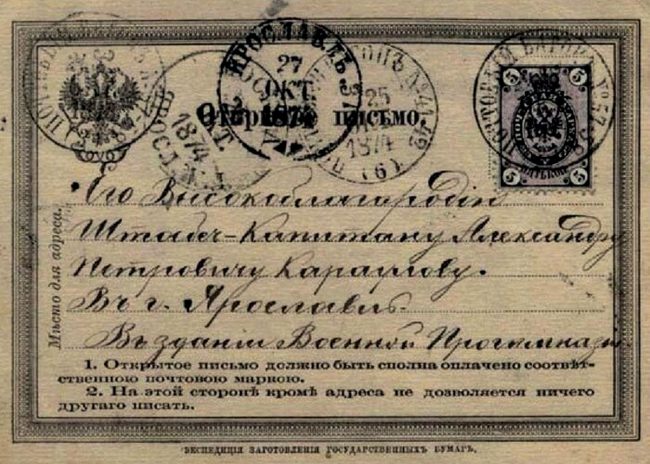 ЯРОСЛАВЛЬ
27
ОКТ
1874
25
1874
(6)
ПОЧТОВЫЙ ВАГОНЪ № 57
5 5
5 5
1874
Открытое письмо.
Его Высокоблагородію
Штабсъ-Капитану Александру
Петровичу Караулову.
Въ г. Ярославль.
Въ зданіи Военной Прогимназіи
Мѣсто для адреса.
1. Открытое письмо должно быть сполна оплачено соотвѣт-
ственною почтовою маркою.
2. На этой сторонѣ кромѣ адреса не дозволяется ничего
другаго писать.
ЭКСПЕДИЦІЯ ЗАГОТОВЛЕНІЯ ГОСУДАРСТВЕННЫХЪ БУМАГЪ.